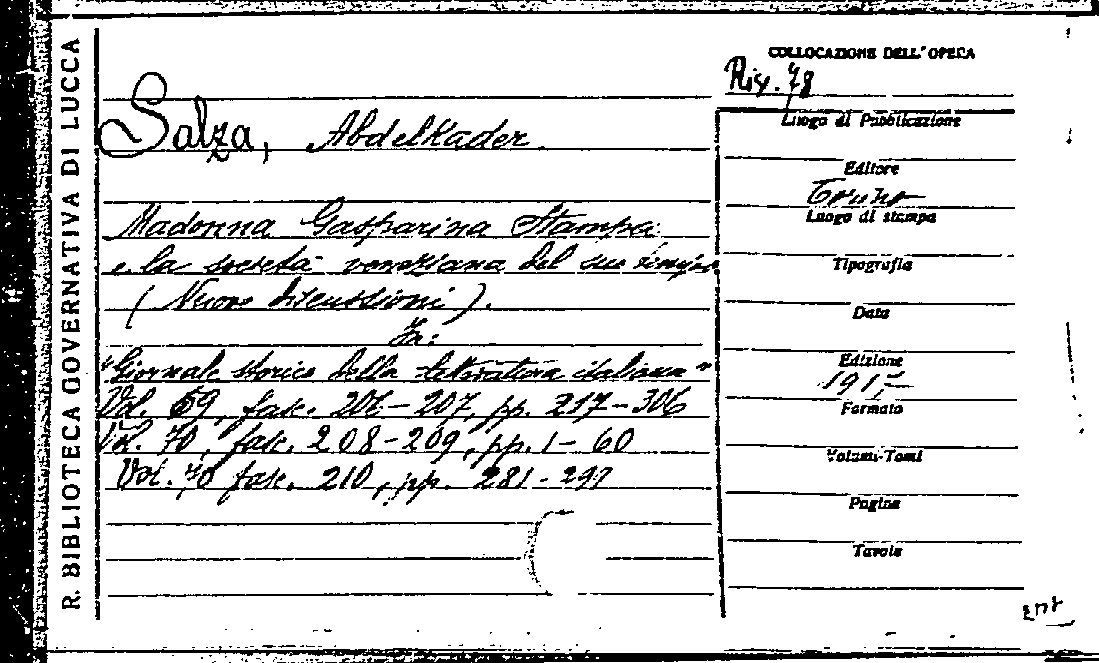 R. BIBLIOTECA GOVERNATIVA DI LUCCA
COLLOCAZIONE DELL' OPERA
Riv. 78
Salza, Abdelkader
Madonna Gasparina Stampa
e la società veneziana del suo tempo
(Nuove discussioni).
In:
"Giornale storico della letteratura italiana"
Vol. 69, fasc. 206-207, pp. 217-306
Vol. 70, fasc. 208-209, pp. 1-60
Vol. 70 fasc. 210, pp. 281-299
Luogo di Pubblicazione
Editore
Torino
Luogo di stampa
Tipografia
Data
Edizione
1917
Formato
Volumi-Tomi
Pagine
Tavole